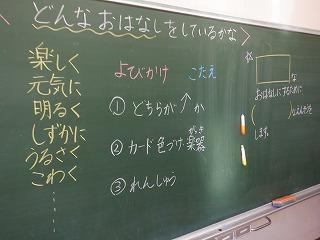 ＜どんなおはなしをしているかな＞
楽しく
元気に
明るく
しずかに
うるさく
こわく
……
よびかけ こたえ
① どちらが↑か
② カード色づけ 楽器
がっき
③ れんしゅう
☆
な
おはなしにするために
( )なえんそうを
します。